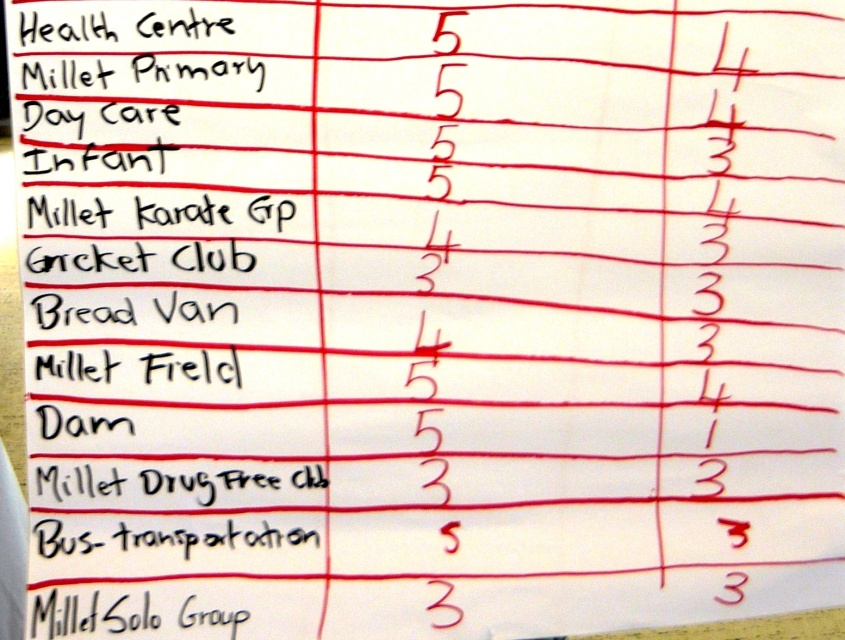 Health Centre 5 4
Millet Primary 5 4
Day Care 5 3
Infant 5 4
Millet Karate Gp 4 3
Cricket Club 3 3
Bread Van 4 3
Millet Field 5 4
Dam 5 1
Millet Drug Free Club 3 3
Bus-transportation 5 3
Millet Solo Group 3 3